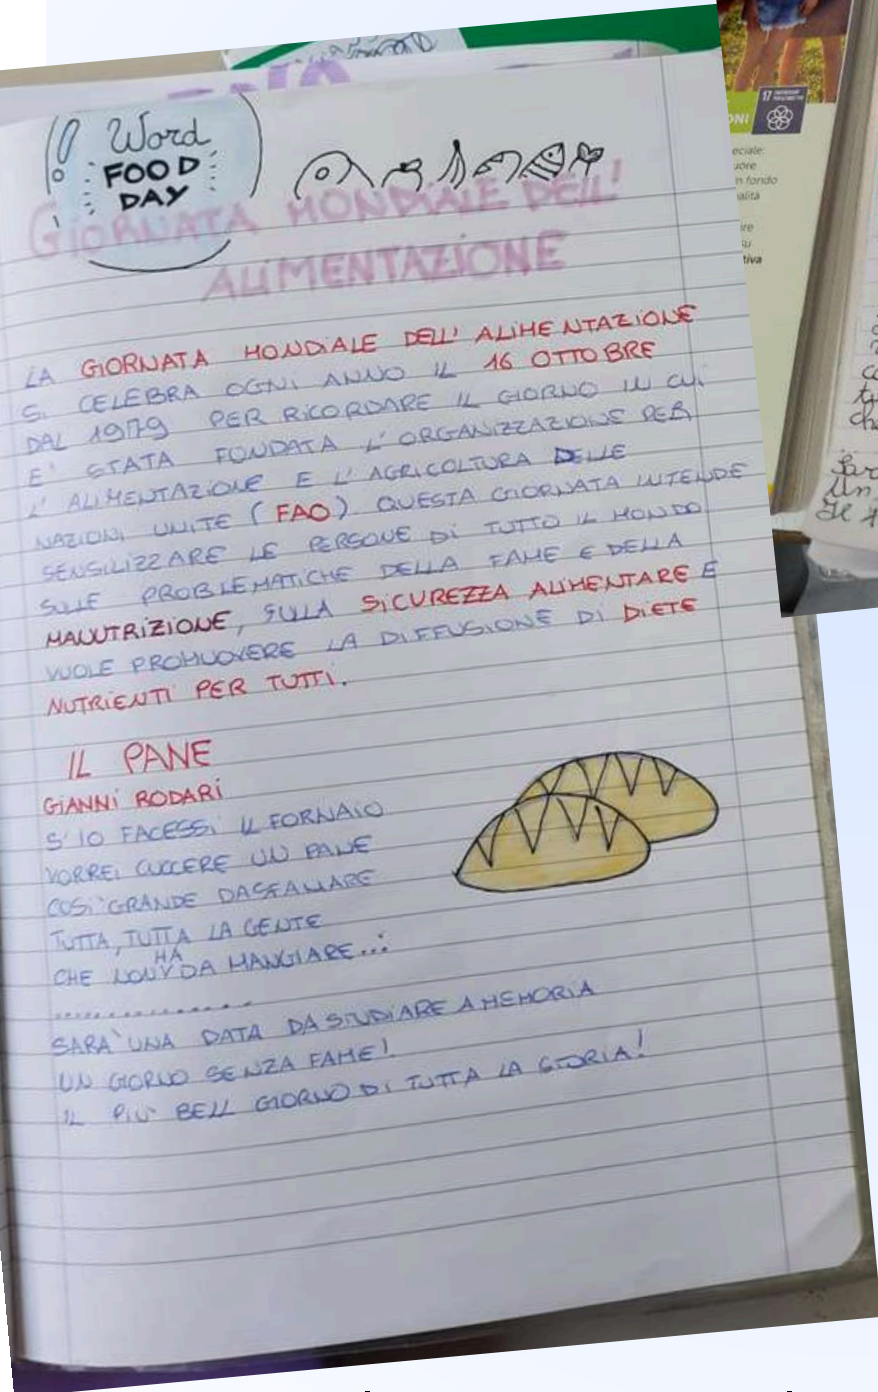 Word
FOOD
DAY
GIORNATA MONDIALE DELL'
ALIMENTAZIONE
LA GIORNATA MONDIALE DELL' ALIMENTAZIONE
SI CELEBRA OGNI ANNO IL 16 OTTOBRE
DAL 1979 PER RICORDARE IL GIORNO IN CUI
E' STATA FONDATA L'ORGANIZZAZIONE PER
L' ALIMENTAZIONE E L'AGRICOLTURA DELLE
NAZIONI UNITE (FAO). QUESTA GIORNATA INTENDE
SENSILIZZARE LE PERSONE DI TUTTO IL MONDO
SULLE PROBLEMATICHE DELLA FAME E DELLA
MALNUTRIZIONE, SULLA SICUREZZA ALIMENTARE E
VUOLE PROMUOVERE LA DIFFUSIONE DI DIETE
NUTRIENTI PER TUTTI.
IL PANE
GIANNI RODARI
S'IO FACESSI IL FORNAIO
VORREI CUOCERE UN PANE
COSI' GRANDE DA SFAMARE
TUTTA, TUTTA LA GENTE
CHE NON HA DA MANGIARE...
..................
SARA' UNA DATA DA STUDIARE A MEMORIA
UN GIORNO SENZA FAME!
IL PIU' BELL GIORNO DI TUTTA LA STORIA!
17
ONI
eciale:
uore
n fondo
alità
ire
su
tiva